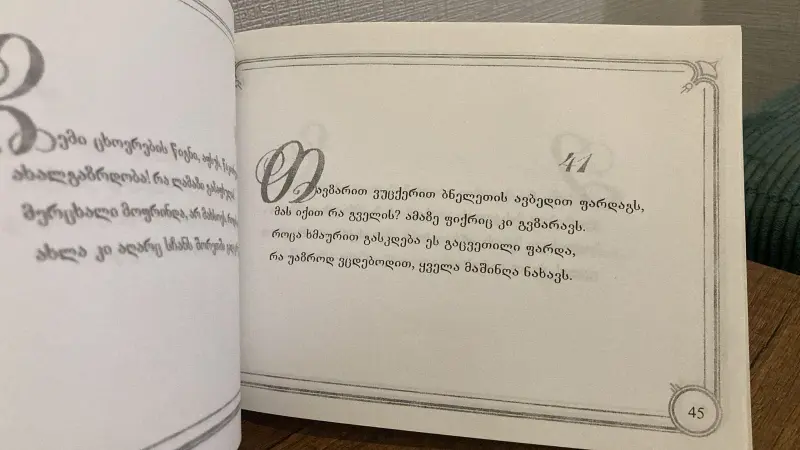 ჩემი ცხოვრების წიგნი,
ახალგაზრდობა! რა ლამაზი
მერცხალი მოფრინდა, არ მახსოვს,
ახლა კი აღარც სჩანს შორეულ
41
თავზარით ვუცქერით ბნელეთის ავბედით ფარდაგს,
მას იქით რა გველის? ამაზე ფიქრიც კი გვზარავს.
როცა ხმაურით გასკდება ეს გაცვეთილი ფარდა,
რა უაზროდ ვცდებოდით, ყველა მაშინღა ნახავს.
45